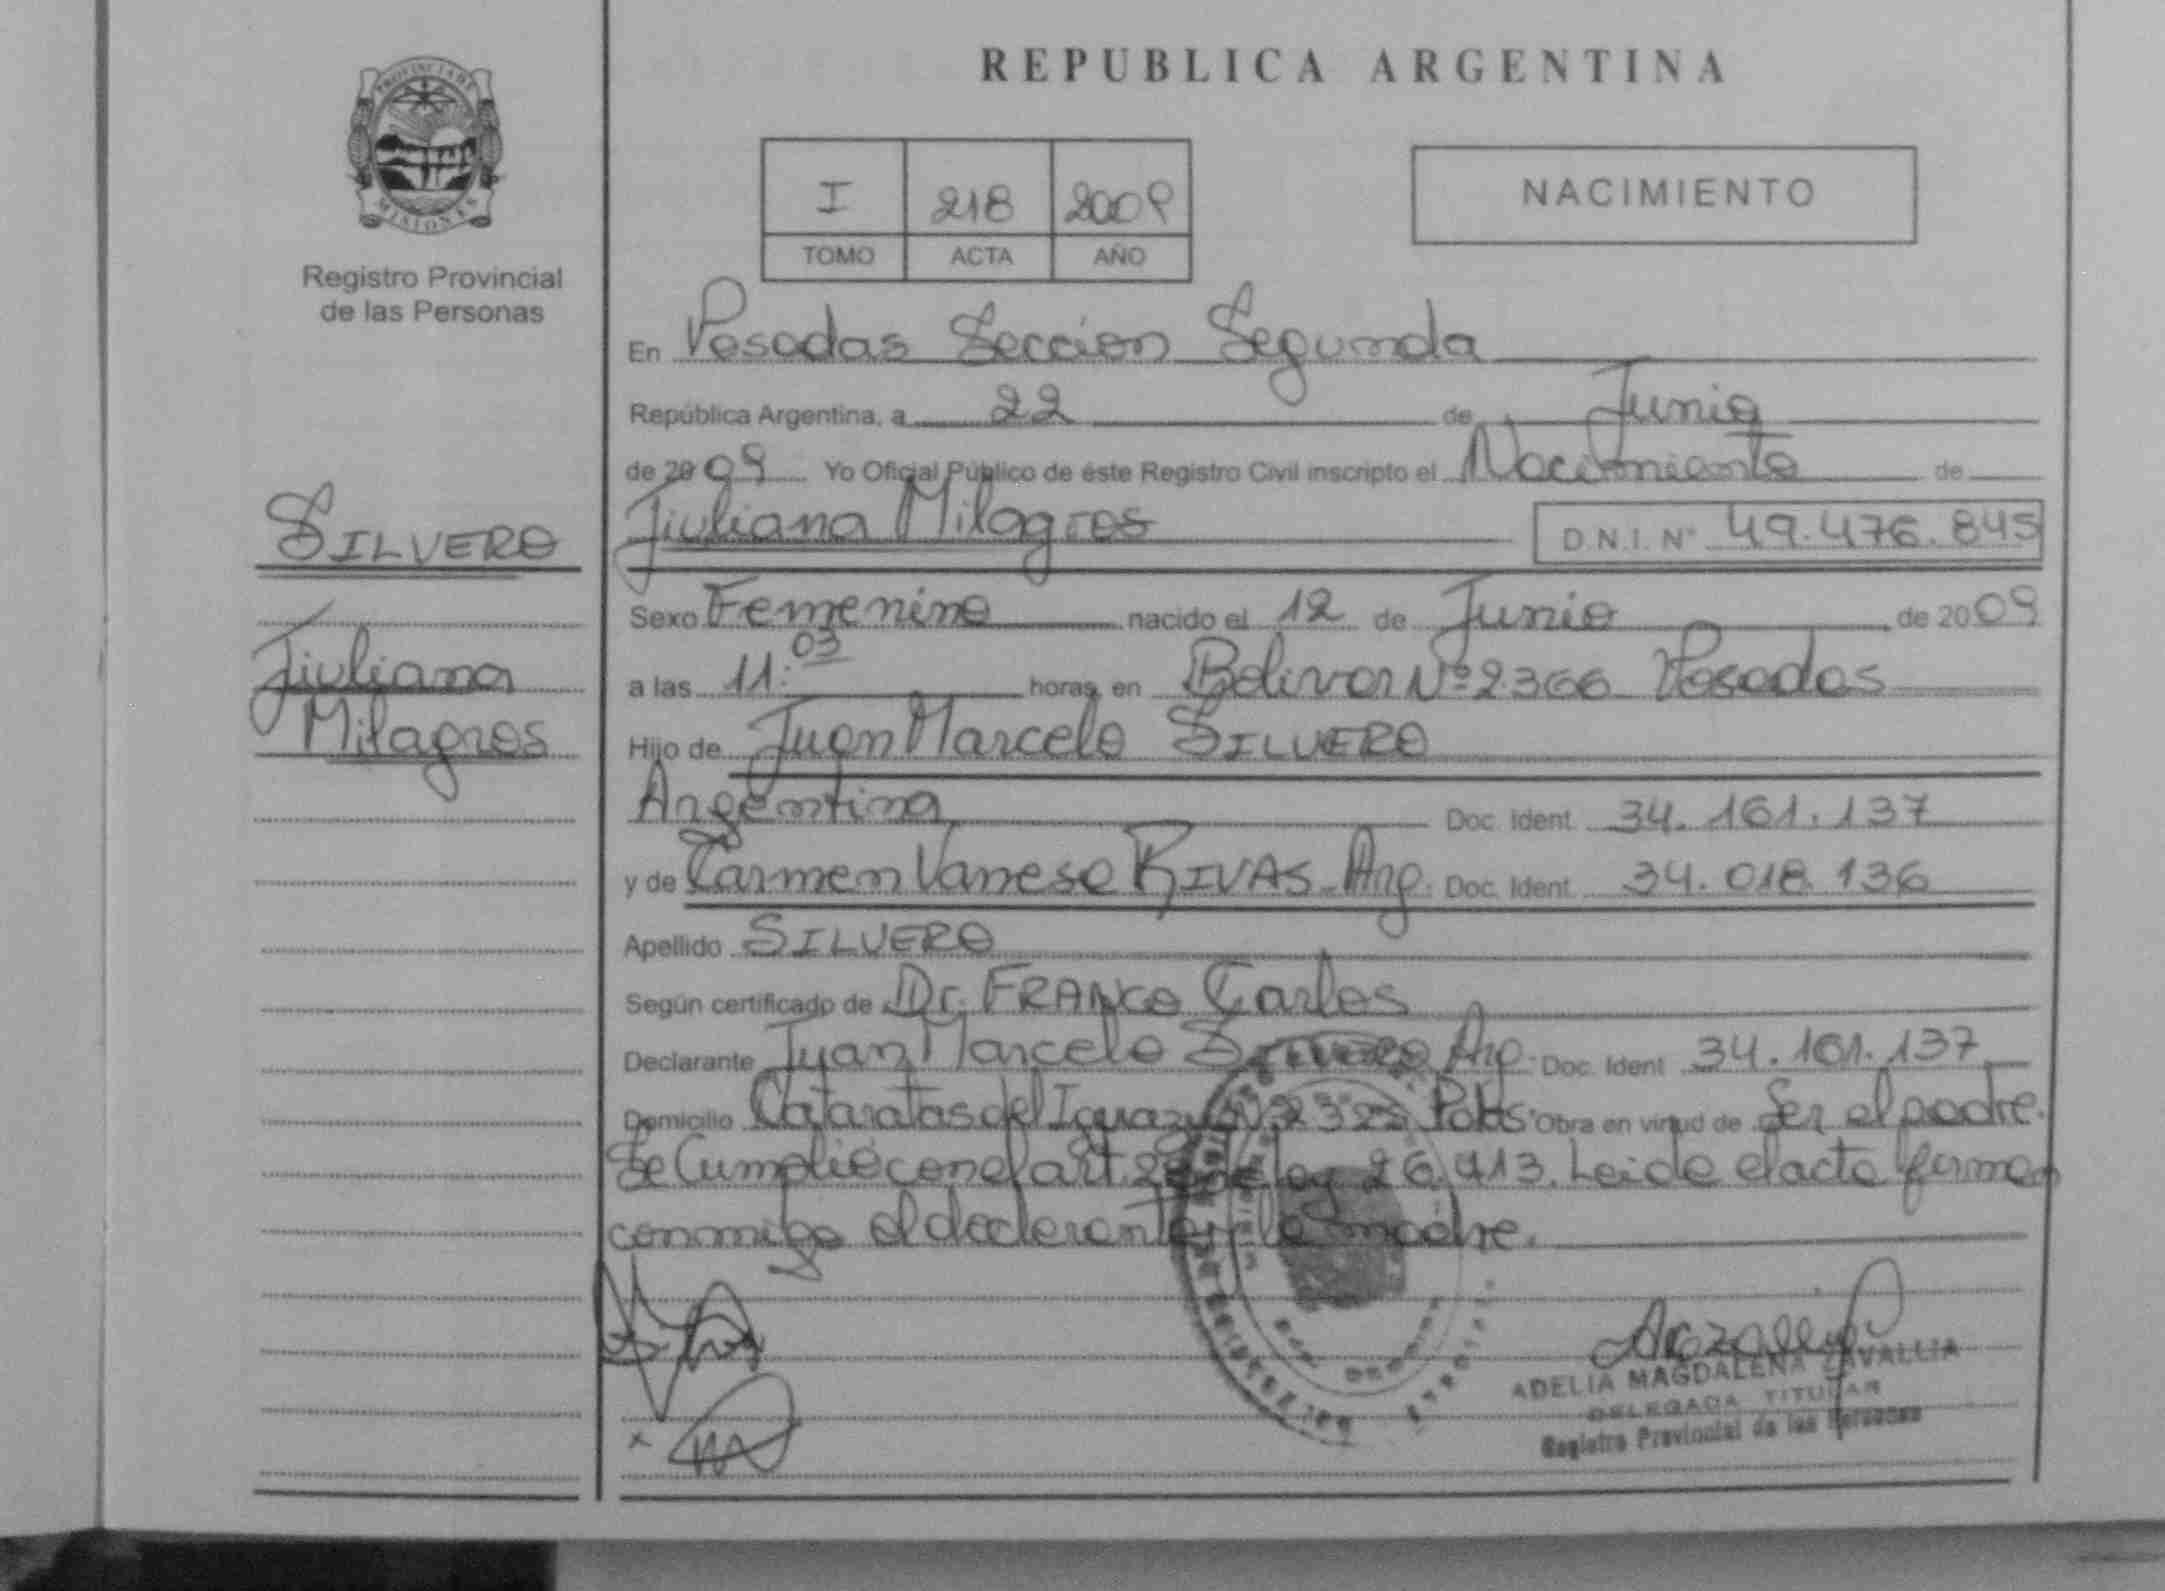 REPUBLICA ARGENTINA
PROVINCIA DE
MISIONES
Registro Provincial
de las Personas
I 218 2009
TOMO ACTA AÑO
NACIMIENTO
En Posadas Sección Segunda
República Argentina, a 22 de Junio
de 2009 Yo Oficial Público de éste Registro Civil inscripto el Nacimiento de
SILVERO
Jiuliana Milagros D.N.I. N° 49.476.845
Sexo Femenino nacido el 12 de Junio de 2009
Jiuliana
Milagros
a las 11:03 horas, en Bolivar Nº 2366 Posadas
Hijo de Juan Marcelo SILVERO
Argentina Doc. Ident. 34.161.137
y de Carmen Vanesa RIVAS Arg. Doc. Ident. 34.018.136
Apellido SILVERO
Según certificado de Dr. FRANCO Carlos
Declarante Juan Marcelo SILVERO Arg. Doc. Ident 34.161.137
Domicilio Cataratas del Iguazu Obra en virtud de Ser el padre.
Se Cumplió con el art. ley 26.413. Leida el acta firman
conmigo el declarante y la madre.
ADELIA MAGDALENA ZAVALLIA
DELEGADA TITULAR
Registro Provincial de las Personas